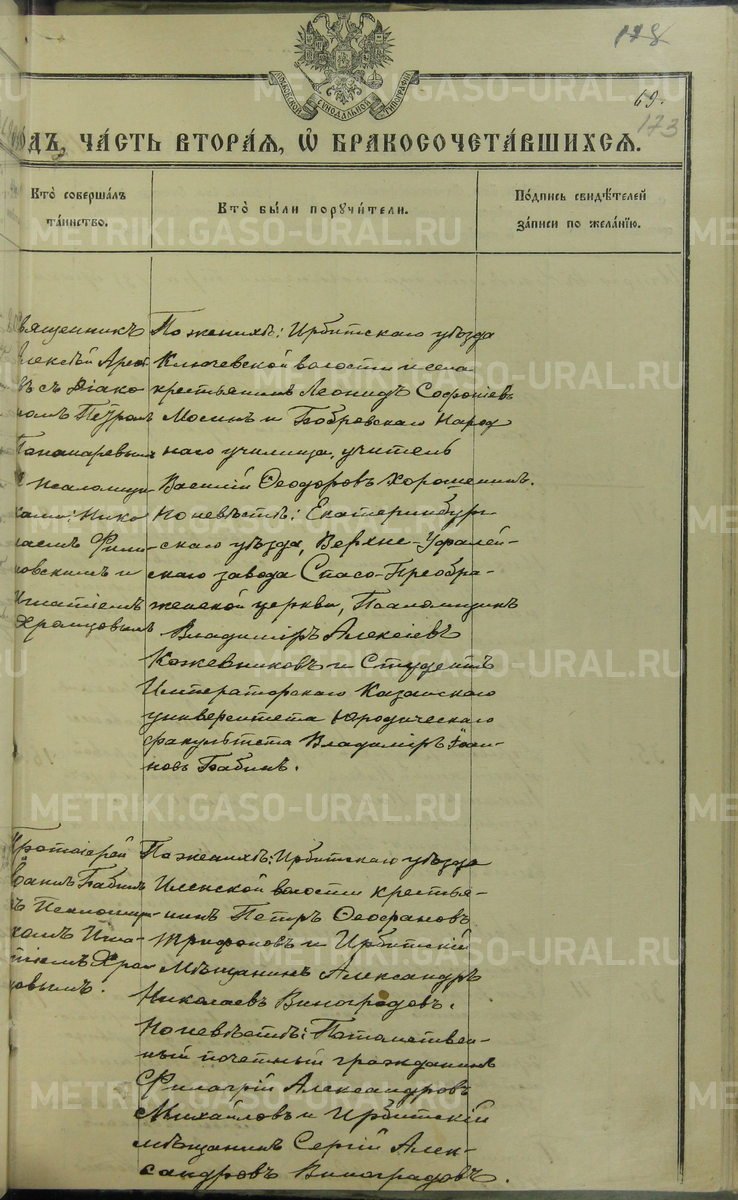 178
69.
173
МОСКОВСКОЙ СѴНОДАЛЬНОЙ ТИПОГРАФІИ
ОДЪ, ЧАСТЬ ВТОРАЯ, Ѡ БРАКОСОЧЕТАВШИХСЯ.
Кто совершалъ
таинство.
Кто были поручители.
Подпись свидѣтелей
записи по желанію.
вященникъ
лексѣй
въ съ Діако
номъ Петромъ
Пономаревымъ
и Псаломщи
ками: Нико
лаемъ
овскимъ и
Игнатіемъ
Храмцовымъ
По женихѣ: Ирбитскаго уѣзда
Ключевской волости и села
крестьянинъ Леонидъ Софоніевъ
Мосинъ и Бобровскаго Народ
наго училища, учитель
Василій Ѳеодоровъ Хорошенинъ.
По невѣстѣ: Екатеринбург
скаго уѣзда, Верхне-Уфалей-
скаго завода Спасо-Преобра-
женской церкви, Псаломщикъ
Владиміръ Алексіевъ
Кожевниковъ и Студентъ
Императорскаго Казанскаго
университета Юродическаго
факультета Владиміръ Іоан-
новъ Бабинъ.
Протоіерей
Іоаннъ Бабинъ
съ Псаломщи-
комъ Игна-
тіемъ Храм
цовымъ.
По женихѣ: Ирбитскаго уѣзда
Иленской волости крестья-
нинъ Петръ Ѳеофановъ
Трифоновъ и Ирбитскій
Мѣщанинъ Александръ
Николаевъ Виноградовъ.
По невѣстѣ: Потомствен-
ный почетный гражданинъ
Филагрій Александровъ
Михайловъ и Ирбитскій
мѣщанинъ Сергій Алек-
сандровъ Виноградовъ.
METRIKI.GASO-URAL.RU